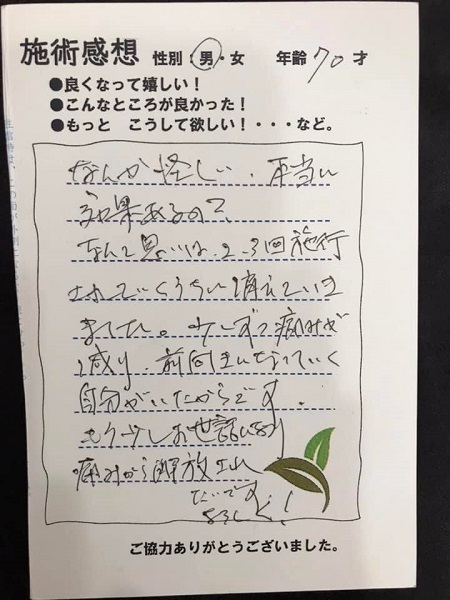 施術感想 性別：男・女 年齢70才
●良くなって嬉しい！
●こんなところが良かった！
●もっと こうして欲しい！・・・など。
なんか怪しい、本当に
効果あるの？
なんて思いは、2、3回施術
されていくうちに消えていき
ました。少しずつ痛みが
減り、前向きになっていく
自分がいたからです。
もう少しお世話になり
痛みから解放
たいです。
よろしく！
ご協力ありがとうございました。